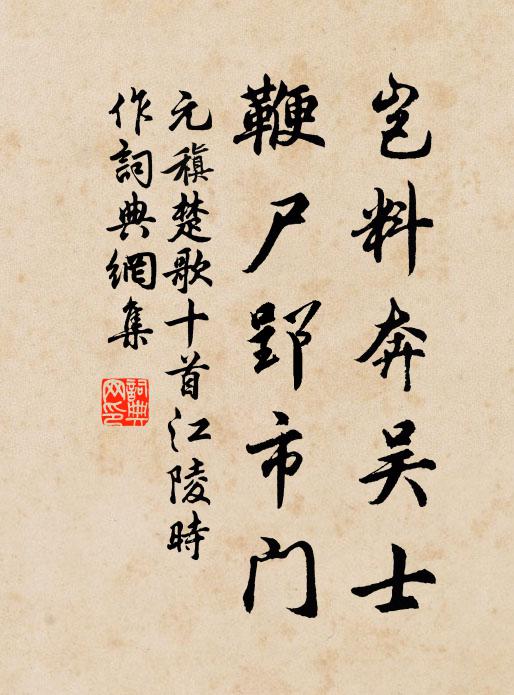 岂料奔吴士
鞭尸郢市门
元稹楚歌十首江陵时
作词典網集
詞典网印